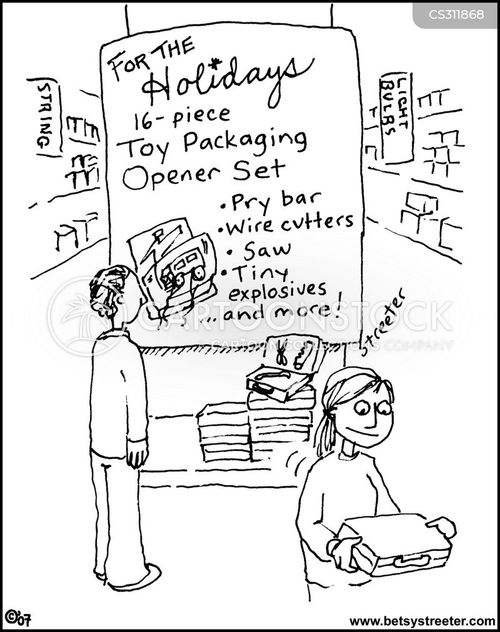 CS311868
FOR THE
Holidays
16-piece
Toy Packaging
Opener Set
• Pry bar
• Wire cutters
• Saw
• Tiny
explosives
...and more!
STRING
LIGHT
BULBS
CARTOONSTOCK
Streeter
©'07
www.betsystreeter.com